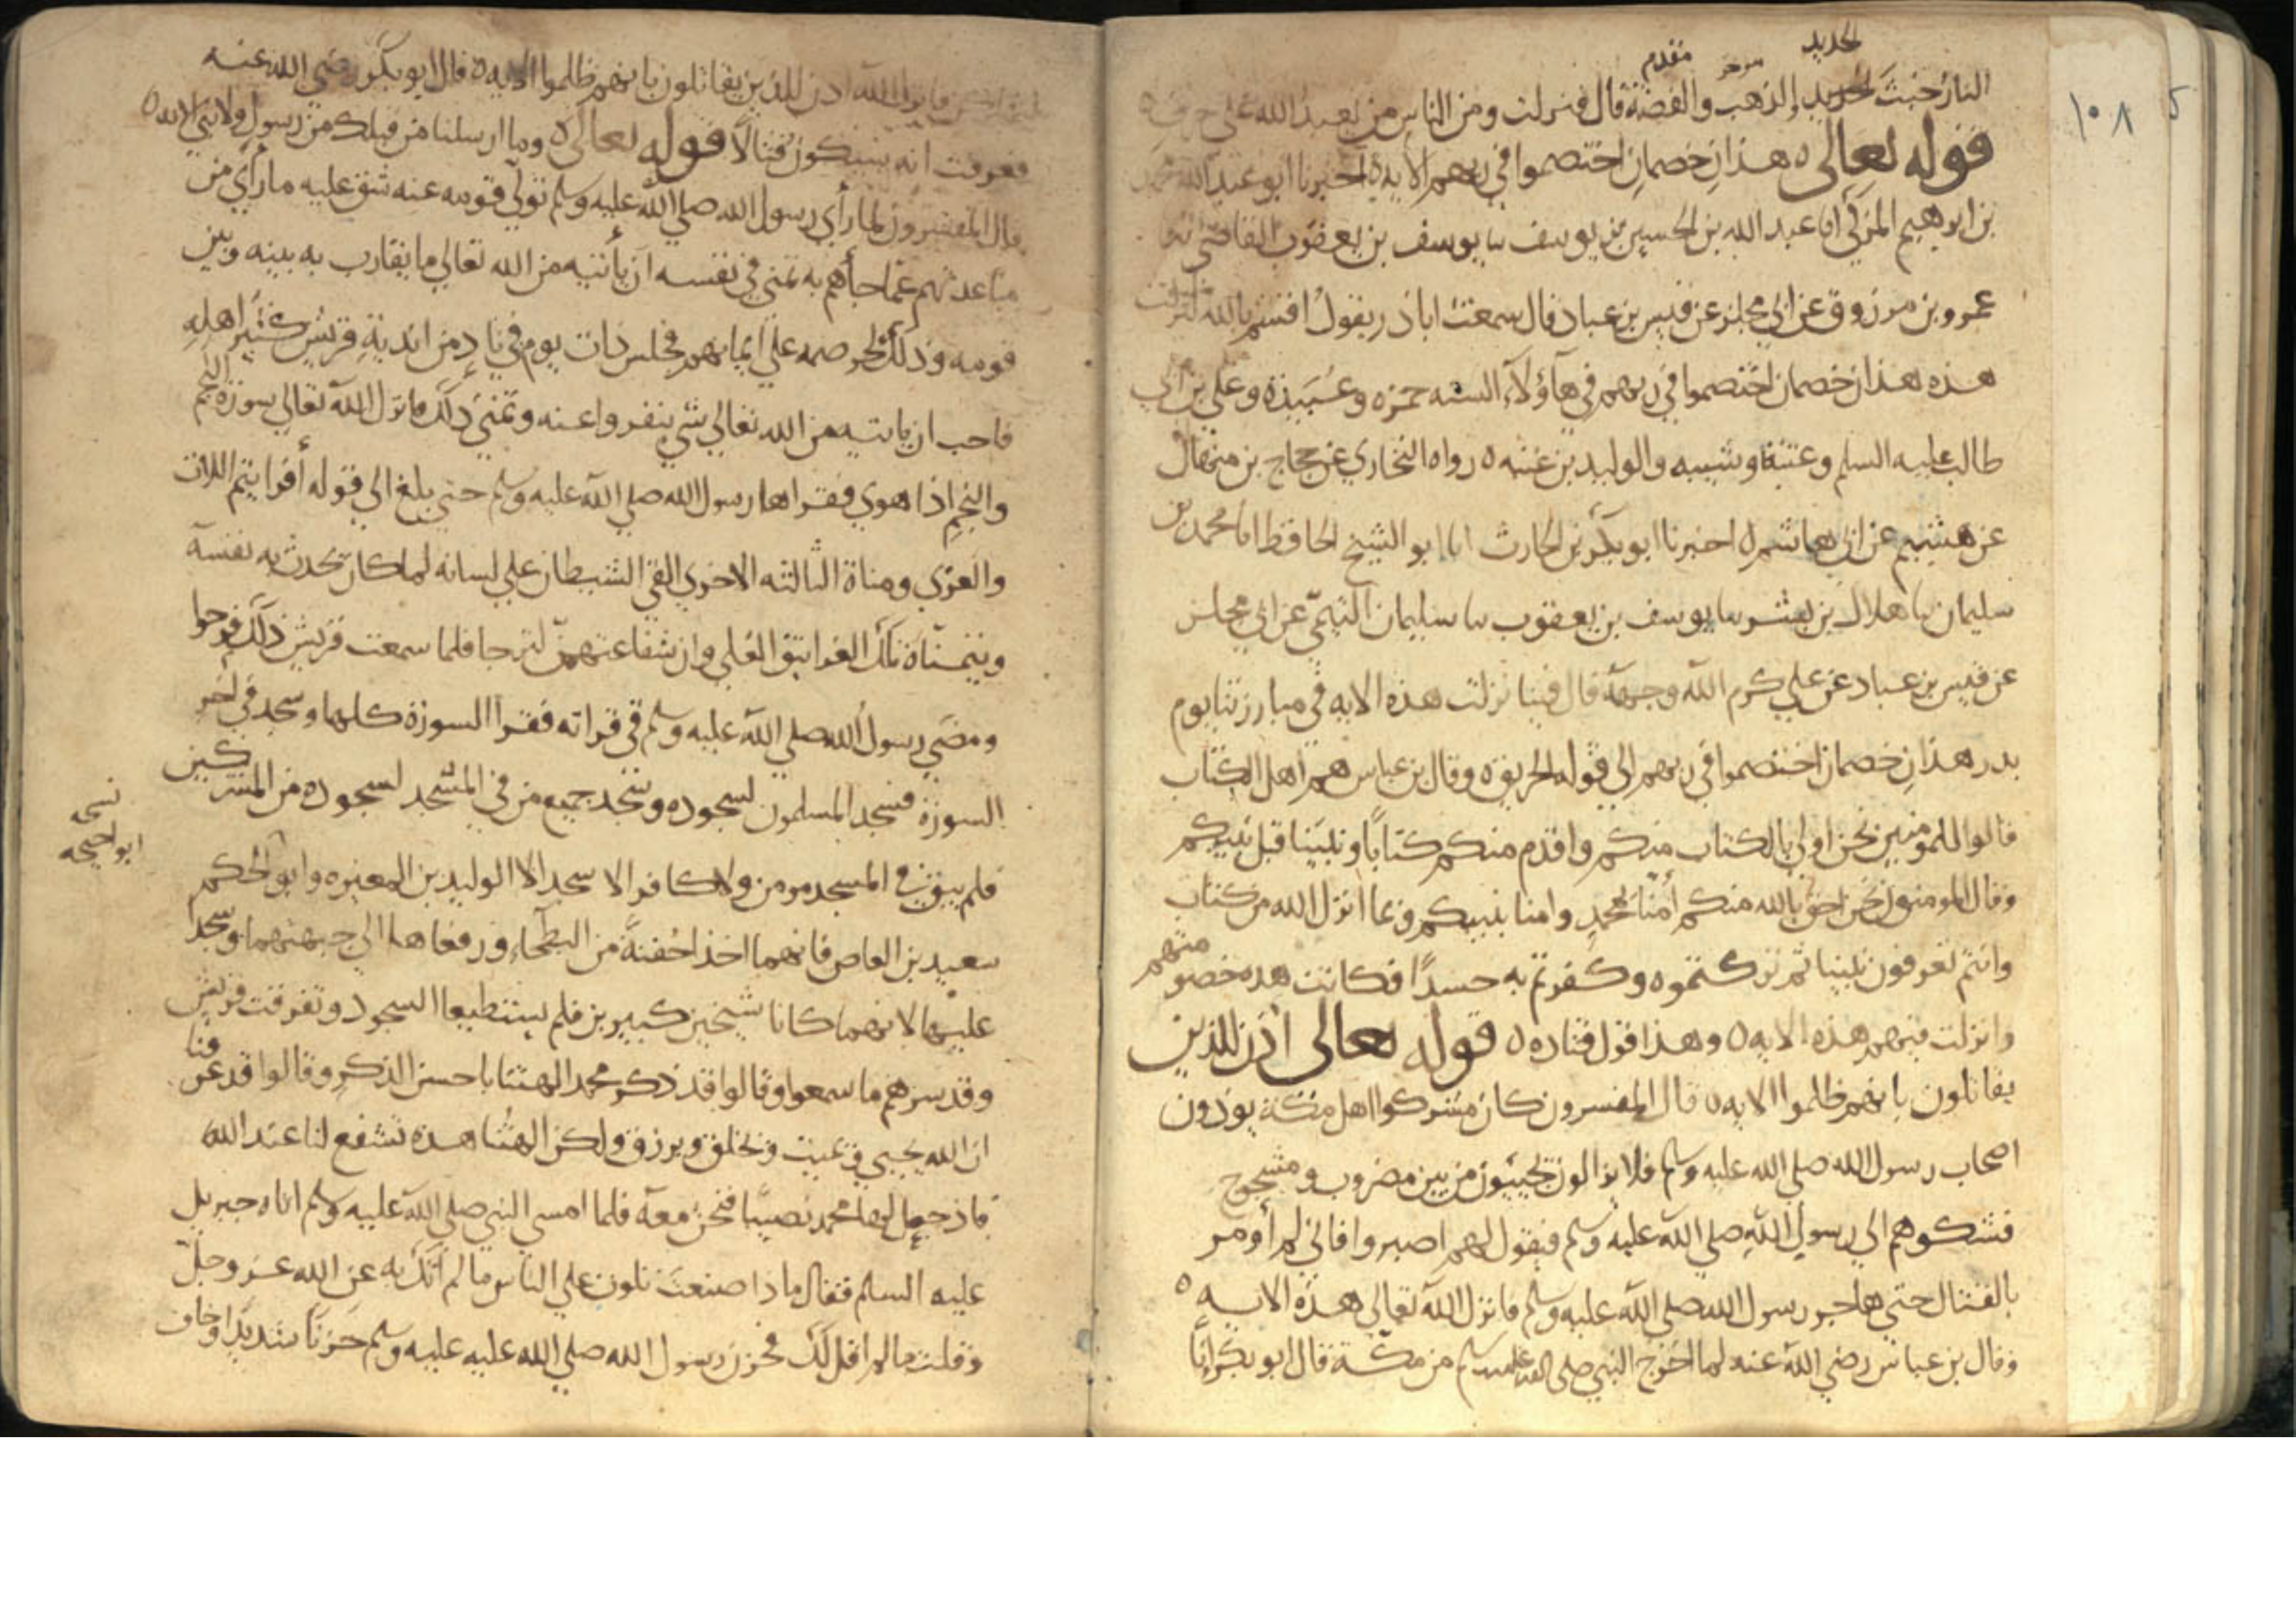 ١٠٨
الحديد
موخر مقدم
النار خبث الحديد والذهب والفضة قال فنزلت ومن الناس من يعبد الله علي حرف ه
قوله تعالى ه هذان خصمان اختصموا في ربهم الايه ه اخبرنا ابو عبد الله محمد
بن ابرهيم المزكي انا عبد الله بن الحسين بن يوسف نا يوسف بن يعقوب القاضي نا
عمرو بن مرزوق عن ابي مجلز عن قيس بن عباد قال سمعت ابا ذر يقول اقسم بالله لنزلت
هذه هذان خصمان اختصموا في ربهم في هآؤلآء السته حمزه وعبيدة وعلي بن ابي
طالب عليه السلم وعتبة وشيبه والوليد بن عتبه ه رواه البخاري عن حجاج بن منهال
عن هشيم عن ابي هاشم ه اخبرنا ابو بكر بن الحارث انا ابو الشيخ الحافظ انا محمد بن
سليمان نا هلال بن بشر نا يوسف بن يعقوب نا سليمان التيمي عن ابي مجلز
عن قيس بن عباد عن علي كرم الله وجهه قال فينا نزلت هذه الايه في مبارزتنا يوم
بدر هذان خصمان اختصموا في ربهم الي قوله الحريق ه وقال بن عباس هم اهل الكتاب
قالوا للمومنين نحن اولي بالكتاب منكم واقدم منكم كتابًا ونبينا قبل نبيكم
وقال المومنون نحن احق بالله منكم امنا بمحمدٍ وامنا بنبيكم وبما انزل الله من كتاب
وانتم تعرفون نبينا ثم تركتموه وكفرتم به حسدًا فكانت هذه خصومتهم
وانزلت فيهم هذه الايه ه وهذا قول قتاده ه قوله تعالى اذن للذين
يقاتلون بانهم ظلموا الايه ه قال المفسرون كان مشركوا اهل مكة يوذون
اصحاب رسول الله صلي الله عليه وسلم فلا يزالون يجيئون من بين مضروب ومشجوج
فشكوهم الي رسول الله صلي الله عليه وسلم فيقول لهم اصبروا فاني لم أومر
بالقتال حتي هاجر رسول الله صلي الله عليه وسلم فانزل الله تعالي هذه الايه ه
وقال بن عباس رضي الله عنه لما اخرج النبي صلى الله عليه وسلم من مكة قال ابو بكر انا
فانزل الله اذن للذين يقاتلون بانهم ظلموا الايه ه قال ابو بكر رضي الله عنه
فعرفت انه سيكون قتالًا قوله تعالى ه وما ارسلنا من قبلك من رسول ولا نبي الايه ه
قال المفسرون لما رأي رسول الله صلي الله عليه وسلم تولي قومه عنه شق عليه ما رأي من
مباعدتهم عما جاهم به تمني في نفسه ان يأتيه من الله تعالي ما يقارب به بينه وبين
قومه وذلك لحرصه علي ايمانهم فجلس ذات يوم في نادٍ من اندية قريش كثير اهله
فاحب ان ياتيه من الله تعالي شي ينفروا عنه وتمني ذلك فانزل الله تعالي سورة النجم
والنجم اذا هوي فقراها رسول الله صلي الله عليه وسلم حتي بلغ الي قوله أفرايتم اللات
والعزي ومناة الثالثه الاخري القي الشيطان علي لسانه لما كان يحدث به نفسه
ويتمناه تلك الغرانيق العلي وان شفاعتهن لترجا فلما سمعت قريش ذلك فرحوا
ومضي رسول الله صلي الله عليه وسلم في قراته فقرا السورة كلها وسجد في اخر
السورة فسجد المسلمون لسجوده وسجد جميع من في المسجد لسجوده من المشركين
فلم يبق في المسجد مومن ولا كافر الا سجد الا الوليد بن المغيره وابو الحكم
ابو احيحه
سعيد بن العاص فانهما اخذا حفنة من البطحاء ورفعاها الي جبهتهما وسجدا
عليها لانهما كانا شيخين كبيرين فلم يستطيعا السجود وتفرقت قريش
وقد سرهم ما سمعوا وقالوا قد ذكر محمد الهتنا باحسن الذكر وقالوا قد عرفنا
ان الله يحيي ويميت ويخلق ويرزق ولكن الهتنا هذه تشفع لنا عند الله
فاذ جعل لها محمد نصيبًا فنحن معه فلما امسي النبي صلي الله عليه وسلم اتاه جبريل
عليه السلم فقال ماذا صنعت تلوت علي الناس ما لم آتك به عن الله عز وجل
وقلت ما لم اقل لك فحزن رسول الله صلي الله عليه عليه وسلم حزنًا شديدًا وخاف